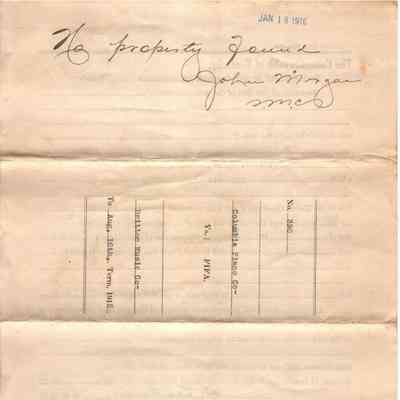 JAN 18 1916
No property found
John Morgan
No. 390
Columbia Piano Co-
Vs.; FIFA.
Music Co-
To Aug. 10th, Term, 1915.